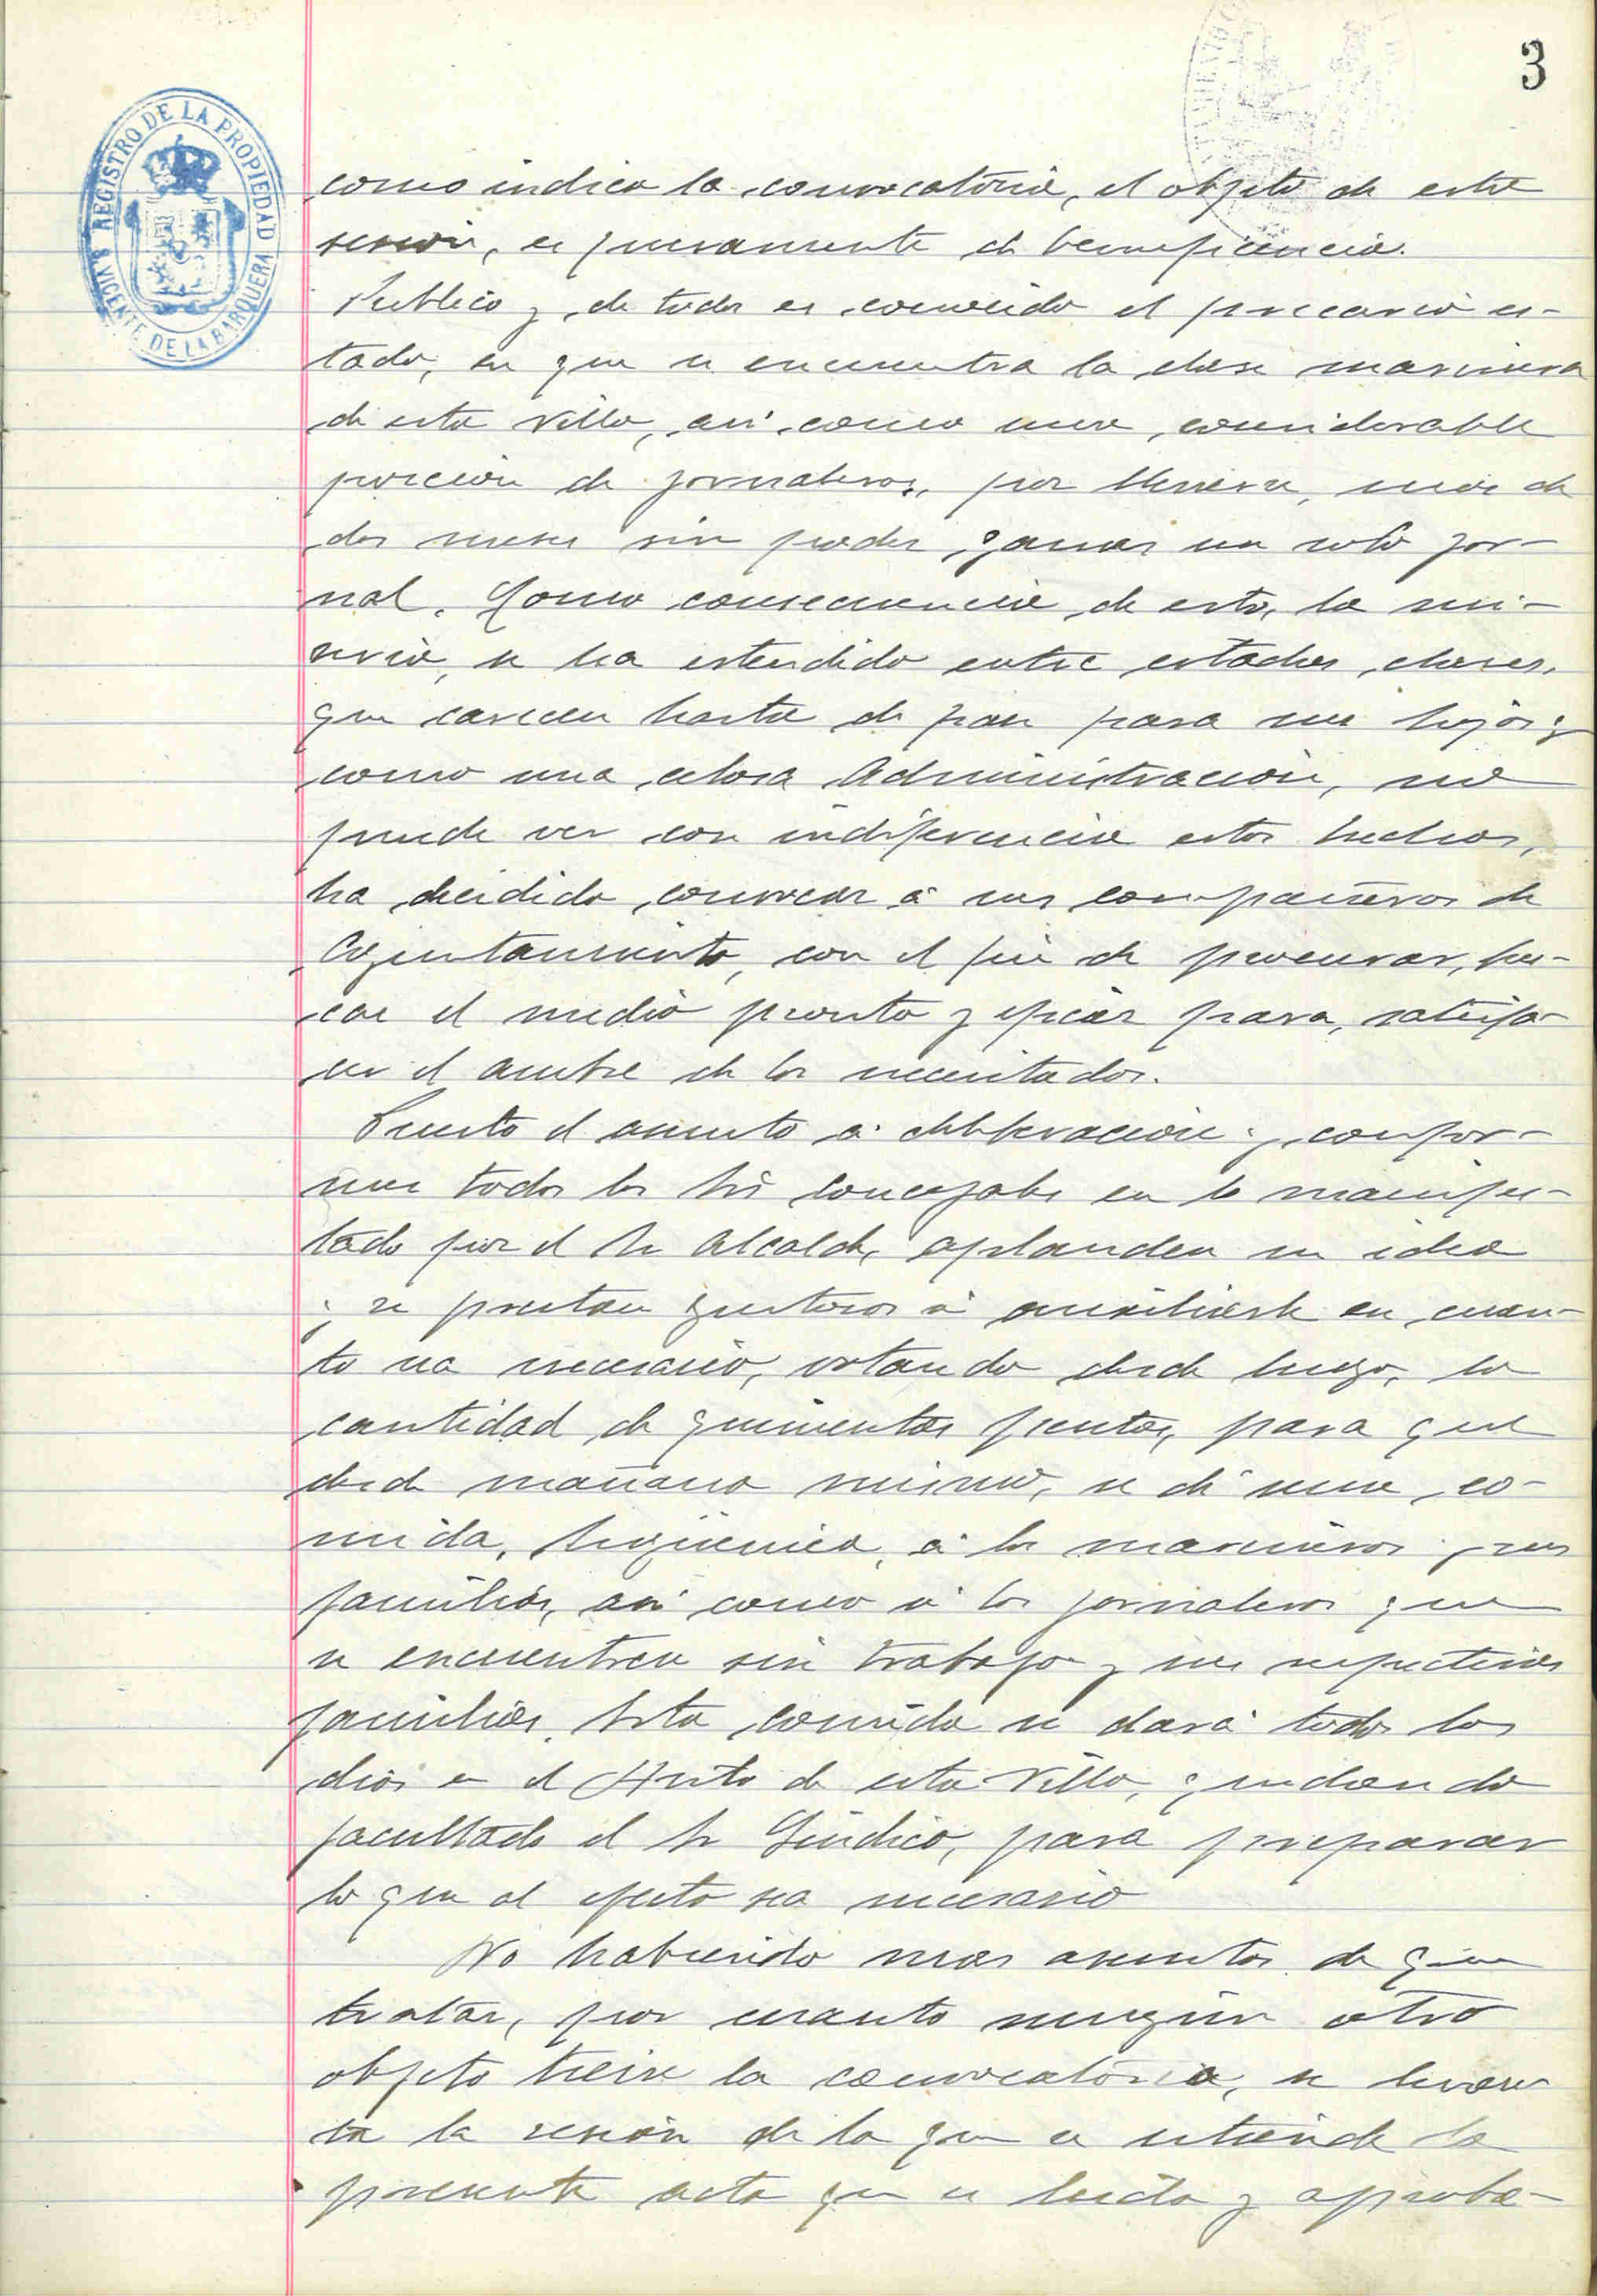 3
REGISTRO DE LA PROPIEDAD
VICENTE DE LA BARQUERA
como indica la convocatoria, el objeto de esta
sesion, es puramente de beneficencia.
Publico y de todos es conocido el precario es-
tado, en que se encuentra la clase marinera
de esta villa, asi como una considerable
porcion de jornaleros, por llevar, mas de
dos meses sin poder ganar un solo jor-
nal. Como consecuencia de esto, la mi-
seria, se ha estendido entre estadas clases,
que carecen hasta de pan para sus hijos; y
como una celosa Administración, no
puede ver con indiferencia estos hechos,
ha decidido convocar á sus compañeros de
Ayuntamiento, con el fin de procurar, bus-
car el medio pronto y eficáz para, satisfa-
cer el ambre de los necesitados.
Puesto el asunto á deliberacion y confor-
mes todos los Srs Concejales en lo manifes-
tado por el Sr Alcalde, aplauden su idea
y se prestan gustosos á auxiliarle en cuan-
to sea necesario, votando desde luego, la
cantidad de quinientas pesetas, para que
desde mañana mismo, se dé una co-
mida, higiénica, á los marineros y sus
familias, asi como á los jornaleros que
se encuentren sin trabajo y sus respectivas
familias. Esta comida se dará todos los
dias en el de esta Villa, quedando
facultado el Sr Síndico, para preparar
lo que al efecto sea necesario
No habiendo mas asuntos de que
tratar, por cuanto ningún otro
objeto tiene la convocatoria, se levan-
ta la sesión de la que se estiende la
presente acta que es leida y aproba-